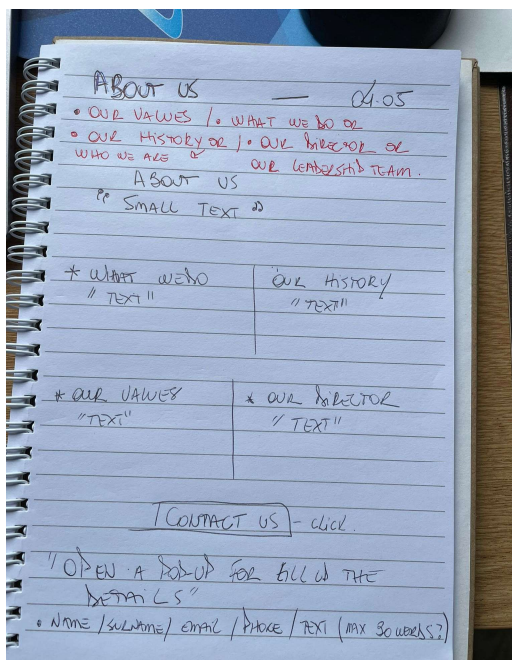 ABOUT US — 04.05
• OUR VALUES / • WHAT WE DO OR
• OUR HISTORY OR / • OUR DIRECTOR OR
WHO WE ARE OUR LEADERSHIP TEAM.
ABOUT US
" SMALL TEXT "
* WHAT WE DO
" TEXT "
OUR HISTORY
" TEXT "
* OUR VALUES
"TEXT"
* OUR DIRECTOR
" TEXT "
CONTACT US - click.
"OPEN A POP-UP FOR FILL IN THE
DETAILS"
• NAME / SURNAME / EMAIL / PHONE / TEXT (MAX 30 WORDS?)